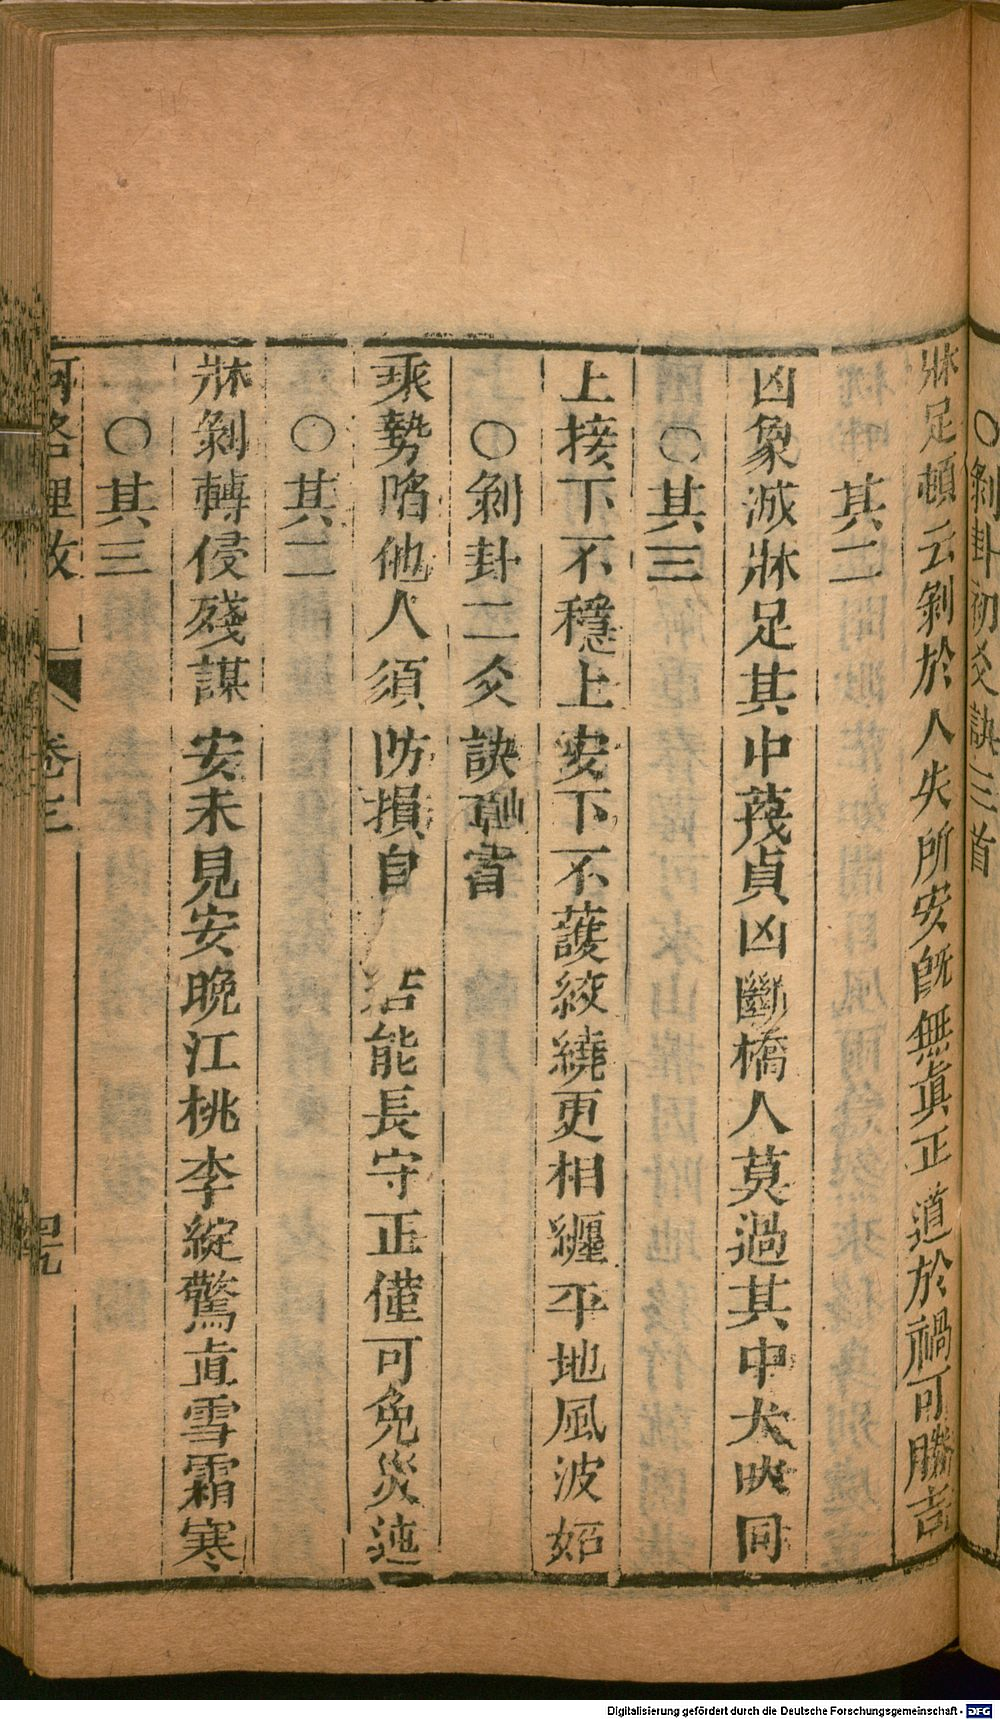 ○剝卦初爻訣三首
牀足頓云剝於人失所安旣無眞正道於禍可勝言
其二
凶象滅牀足其中蔑貞凶斷橋人莫過其中大㫟同
○其三
上接下不穩上安下不護絞繞更相纏平地風波妬
○剝卦二爻訣
乘勢陷他人須防損自 能長守正僅可免災迍
○其二
牀剝轉侵殘謀安未見安晚江桃李綻驚直雪霜寒
○其三
河洛理數 卷三 四九
Digitalisierung gefördert durch die Deutsche Forschungsgemeinschaft - DFG